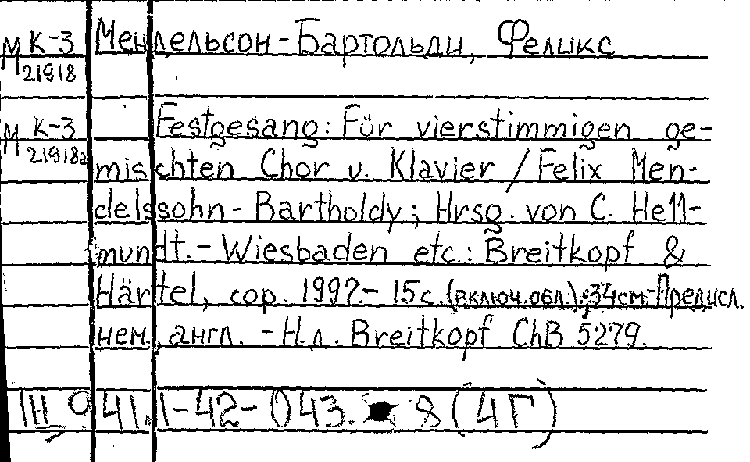 М К-3 Мендельсон-Бартольди, Феликс
21918
М К-3 Festgesang: Für vierstimmigen ge-
21918а mischten Chor u. Klavier / Felix Men-
delssohn-Bartholdy; Hrsg. von C. Hell-
mundt.- Wiesbaden etc.: Breitkopf &
Härtel, cop. 1997.- 15 с. (включ. обл.); 34 см.-Предисл.
нем., англ. - Н.д. Breitkopf ChB 5279.
41.1-42-043. 8 (4Г)